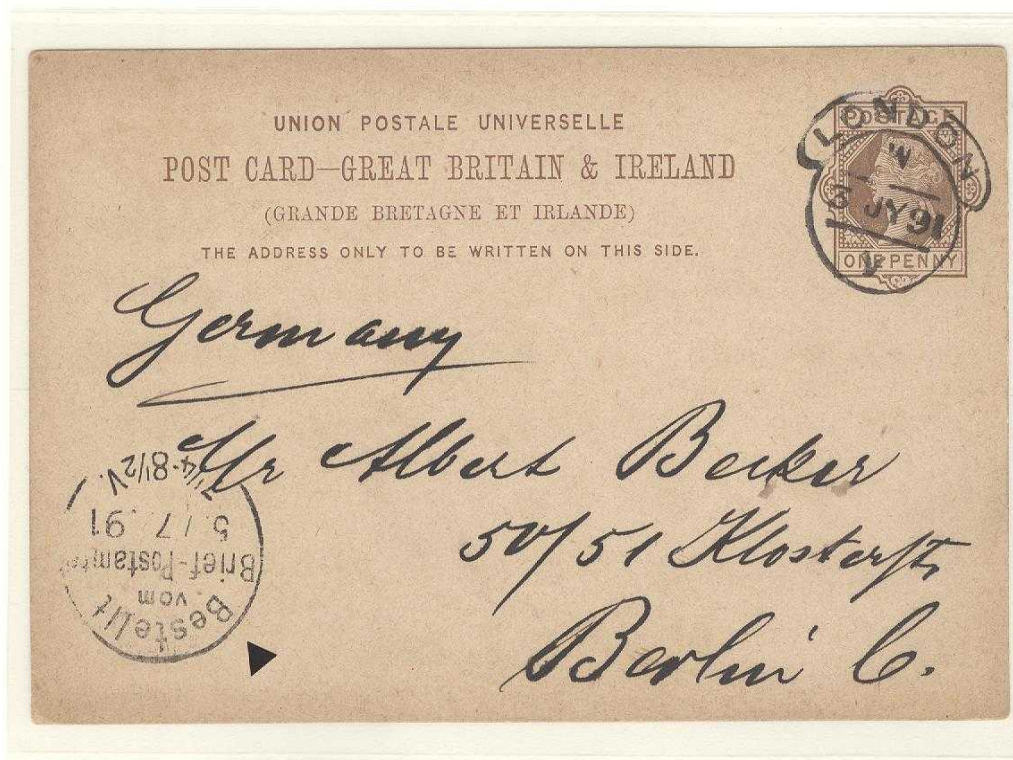 UNION POSTALE UNIVERSELLE
POST CARD—GREAT BRITAIN & IRELAND
(GRANDE BRETAGNE ET IRLANDE)
THE ADDRESS ONLY TO BE WRITTEN ON THIS SIDE.
POSTAGE
ONE PENNY
LONDON
M
3 JY 91
Germany
Mr Albert Becker
50/51 Klosterstr
Berlin C.
Bestellt
vom
Brief-Postamte
5/7.91
7¼-8½V.